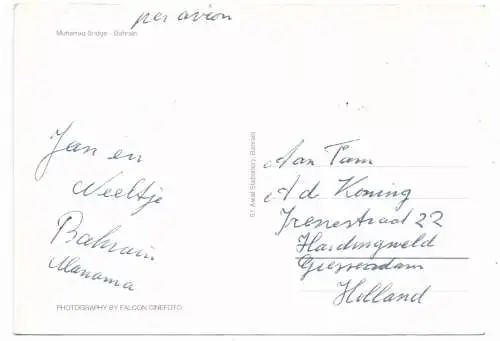 per avion
Muharraq Bridge - Bahrain
Jan en
Neeltje
Bahrain
Manama
PHOTOGRAPHY BY FALCON CINEFOTO
51 Awal Stationery, Bahrain
Aan Fam
A d Koning
Irenestraat 22
Hardingsveld
Giessendam
Holland